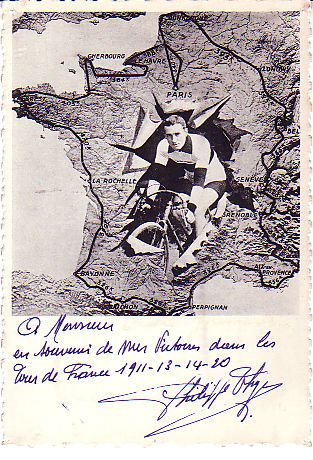 CHERBOURG
LE HAVRE
PARIS
BEL
LA ROCHELLE
GENÈVE
GRENOBLE
BAYONNE
PERPIGNAN
A Monsieur
en souvenir de mes Victoires dans les
Tour de France 1911-13-14-20
Philippe Thys